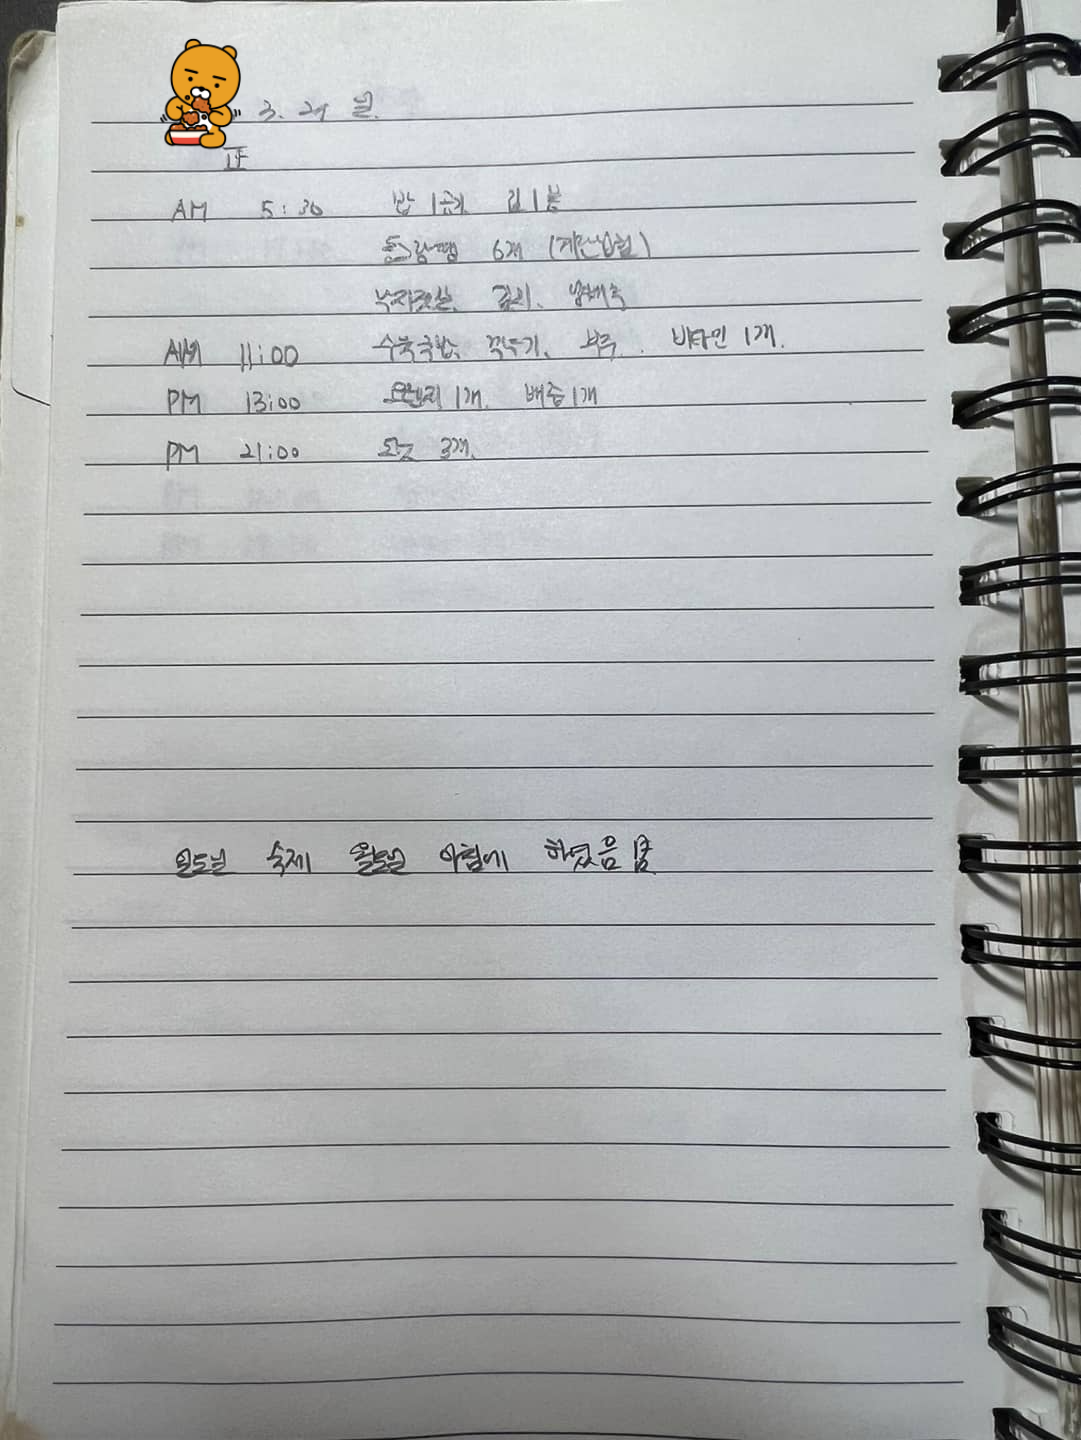 3. 29 일.
正
AM 5:30 밥 1공기 김 1봉
동그랑땡 6개 (계란입힘)
낙지젓갈, 김치,
AM 11:00 수육국밥, 깍두기, 부추, 비타민 1개.
PM 13:00 오렌지 1개. 배즙 1개
PM 21:00 3개.
일요일 숙제 월요일 아침에 하였음